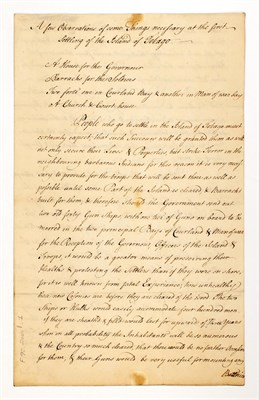 A few Observations of some Things necessary at the first
Settling of the Island of Tobago
A House for the Governour
Barracks for the Soldiers
Two forts one in Courland Bay & another in Man of War bay
A Church & Court house
People who go to settle in the Island of Tobago must
certainly expect, that such Succours will be granted them as will
not only secure their Lives & Properties, but strike Terror in the
neighbouring barbarous Indians for this reason it is very neces-
sary to provide for the troops that will be sent there as well as
possible until some Part of the Island is cleared & Barracks
built for them, & therefore should the Government send out
two old forty Gun Ships, with six of Guns on board to be
moored in the two principal Bays of Courland & Man of war
for the Reception of the Governour, Officers of the Island &
troops, it would be a greater means of preserving their
Healths & protecting the Settlers than if they were on shore,
for it is well known from fatal Experience, how unhealthy
new Colonies are before they are cleared of the wood. The two
Ships or Hulks would easily accommodate four hundred men
if they are sheathed & filled would last for upwards of five Years
when in all probability the Inhabitants will be so numerous
& the Country so much cleared that there would be no further
for them, & their Guns would be very useful for mounting on any